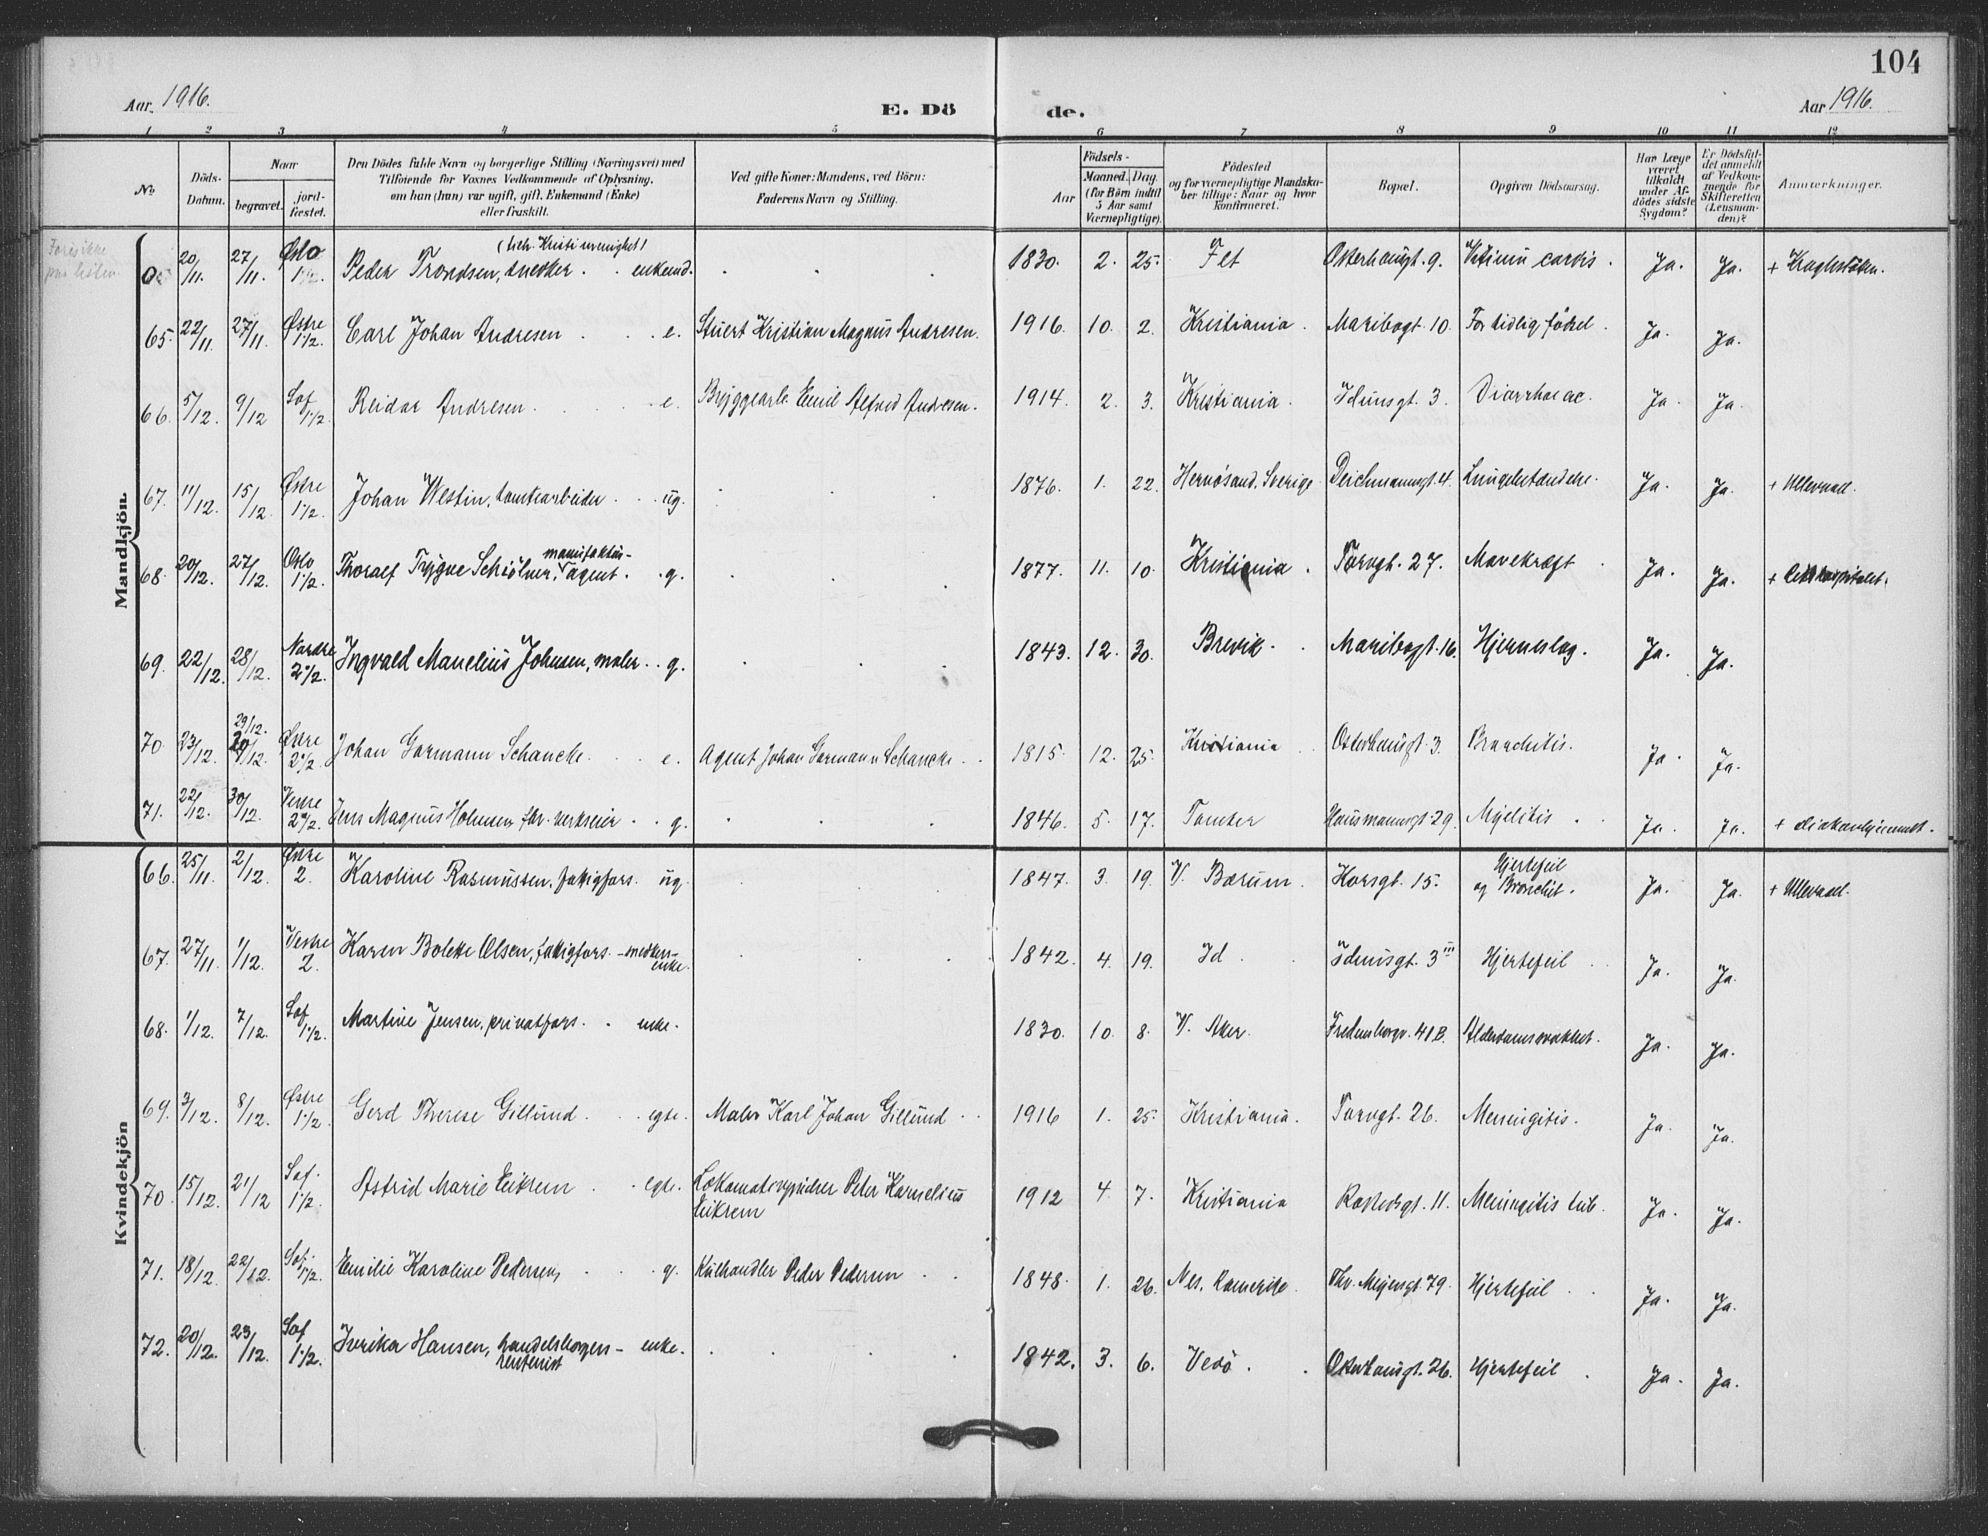 104
Aar 1916.
E. Dö
de.
Aar 1916.
1 2 3 4 5 6 7 8 9 10 11 12
No
Döds-
Datum.
Naar
begravet.
jord-
fæstet.
Den Dödes fulde Navn og borgerlige Stilling (Næringsvei) med
Tilföiende for Voxnes Vedkommende af Oplysning,
om han (hun) var ugift, gift, Enkemand (Enke)
eller fraskilt.
Ved gifte Koner: Mandens, ved Börn:
Faderens Navn og Stilling.
Aar
Födsels-
Maaned. Dag.
(for Börn indtil
5 Aar samt
Værnepligtige).
Födested
og for værnepligtige Mandska-
ber tillige: Naar og hvor
konfirmeret.
Bopæl.
Opgiven Dödsaarsag.
Har Læge
været
tilkaldt
under Af-
dödes sidste
Sygdom?
Er Dödsfal-
det anmeldt
af Vedkom-
mende for
Skifteretten
(Lensman-
den)?
Anmærkninger.
Mandkjön.
20/11. 27/11. Oslo 1/2. Peder Trondsen, snedker . . enkemd. 1830. 2. 25. Fet Osterhausgt. 9. Vitium cordis. Ja. Ja. + Kraghstøtten.
65. 22/11. 27/11. Østre 1/2. Carl Johan Andresen . . e. Stuert Kristian Magnus Andresen. 1916. 10. 2. Kristiania. Maribogt. 10. For tidlig født. Ja. Ja.
66. 5/12. 9/12 Sof. 1/2. Reidar Andresen. e. Bryggearb. Emil Alfred Andresen. 1914. 2. 3. Kristiania. Idunsgt. 3. Diarrhoeac. Ja. Ja.
67. 11/12. 15/12. Østre 1/2. Johan Westin, tomtearbeider . . ug. 1876. 1. 22. Hernøsand, Sverige Deichmannsgt. 4. Lungebetændelse. Ja. Ja. + Ullevaal.
68. 20/12. 27/12. Oslo 1/2. Thoralf Trygve Schiölner, manufaktur-agent. . g. 1877. 11. 10. Kristiania. Torvgt. 27. Mavekræft Ja. Ja.
69. 22/12. 28/12. Nordre 2 1/2. Ingvald Manelius Johnsen, maler . . g. 1843. 12. 30. Brevik. Maribogt. 16. Hjerneslag. Ja. Ja.
70. 23/12. 29/12. Østre 2 1/2. Johan Garmann Schancke. . e. Agent Johan Garmann Schancke. 1815. 12. 25. Kristiania Osterhausgt. 3. Bronchitis. Ja. Ja.
71. 22/12. 30/12. Vestre 2 1/2. Jens Magnus Holmsen, fhv. verkseier . . g. 1846. 5. 17. Tomter Hausmannsgt. 29. Myelitis . Ja. Ja. + diakonhjemmet.
Kvindekjön
66. 25/11. 2/12. Østre 2. Karoline Rasmussen, fatigfors. ug. 1847. 3. 19. V. Bærum. Korsgt. 15. Hjertefeil og Bronchit. Ja. Ja. + Ullevaal.
67. 27/11. 1/12. Vestre 2. Karen Bolette Olsen, fatigfors. enke. 1842. 4. 19. Id . Idunsgt. 3 III Hjertefeil . Ja. Ja.
68. 1/12. 7/12. Sof. 1/2. Martine Jensen, privatfors. . enke. 1830. 10. 8. V. Aker. Fredensborgv. 41B. Alderdomssvakhet. Ja. Ja.
69. 3/12. 8/12. Østre 1/2. Gerd Therese Gillund . . egte. Maler Karl Johan Gillund . 1916 1. 25. Kristiania. Torvgt. 26. Meningitis. Ja. Ja.
70. 15/12. 21/12 Sof. 1/2. Astrid Marie Eikrem . . egte. Lokomotivpudser Peter Kornelius Eikrem 1912 4. 7. Kristiania Rostedsgt. 11. Meningitis tub. Ja. Ja.
71. 18/12. 22/12. Sof. 1/2. Emilie Karoline Pedersen, . . g. Kulhandler Peder Pedersen . 1848. 1. 26. Nes, Romerike Thv. Meyersgt. 79. Hjertefeil . Ja. Ja.
72. 20/12. 23/12. Sof 1/2. Hansen, handelsborgers- enke. rentenist 1842. 3. 6. Vedö . Osterhausgt. 26. Hjertefeil . Ja. Ja.